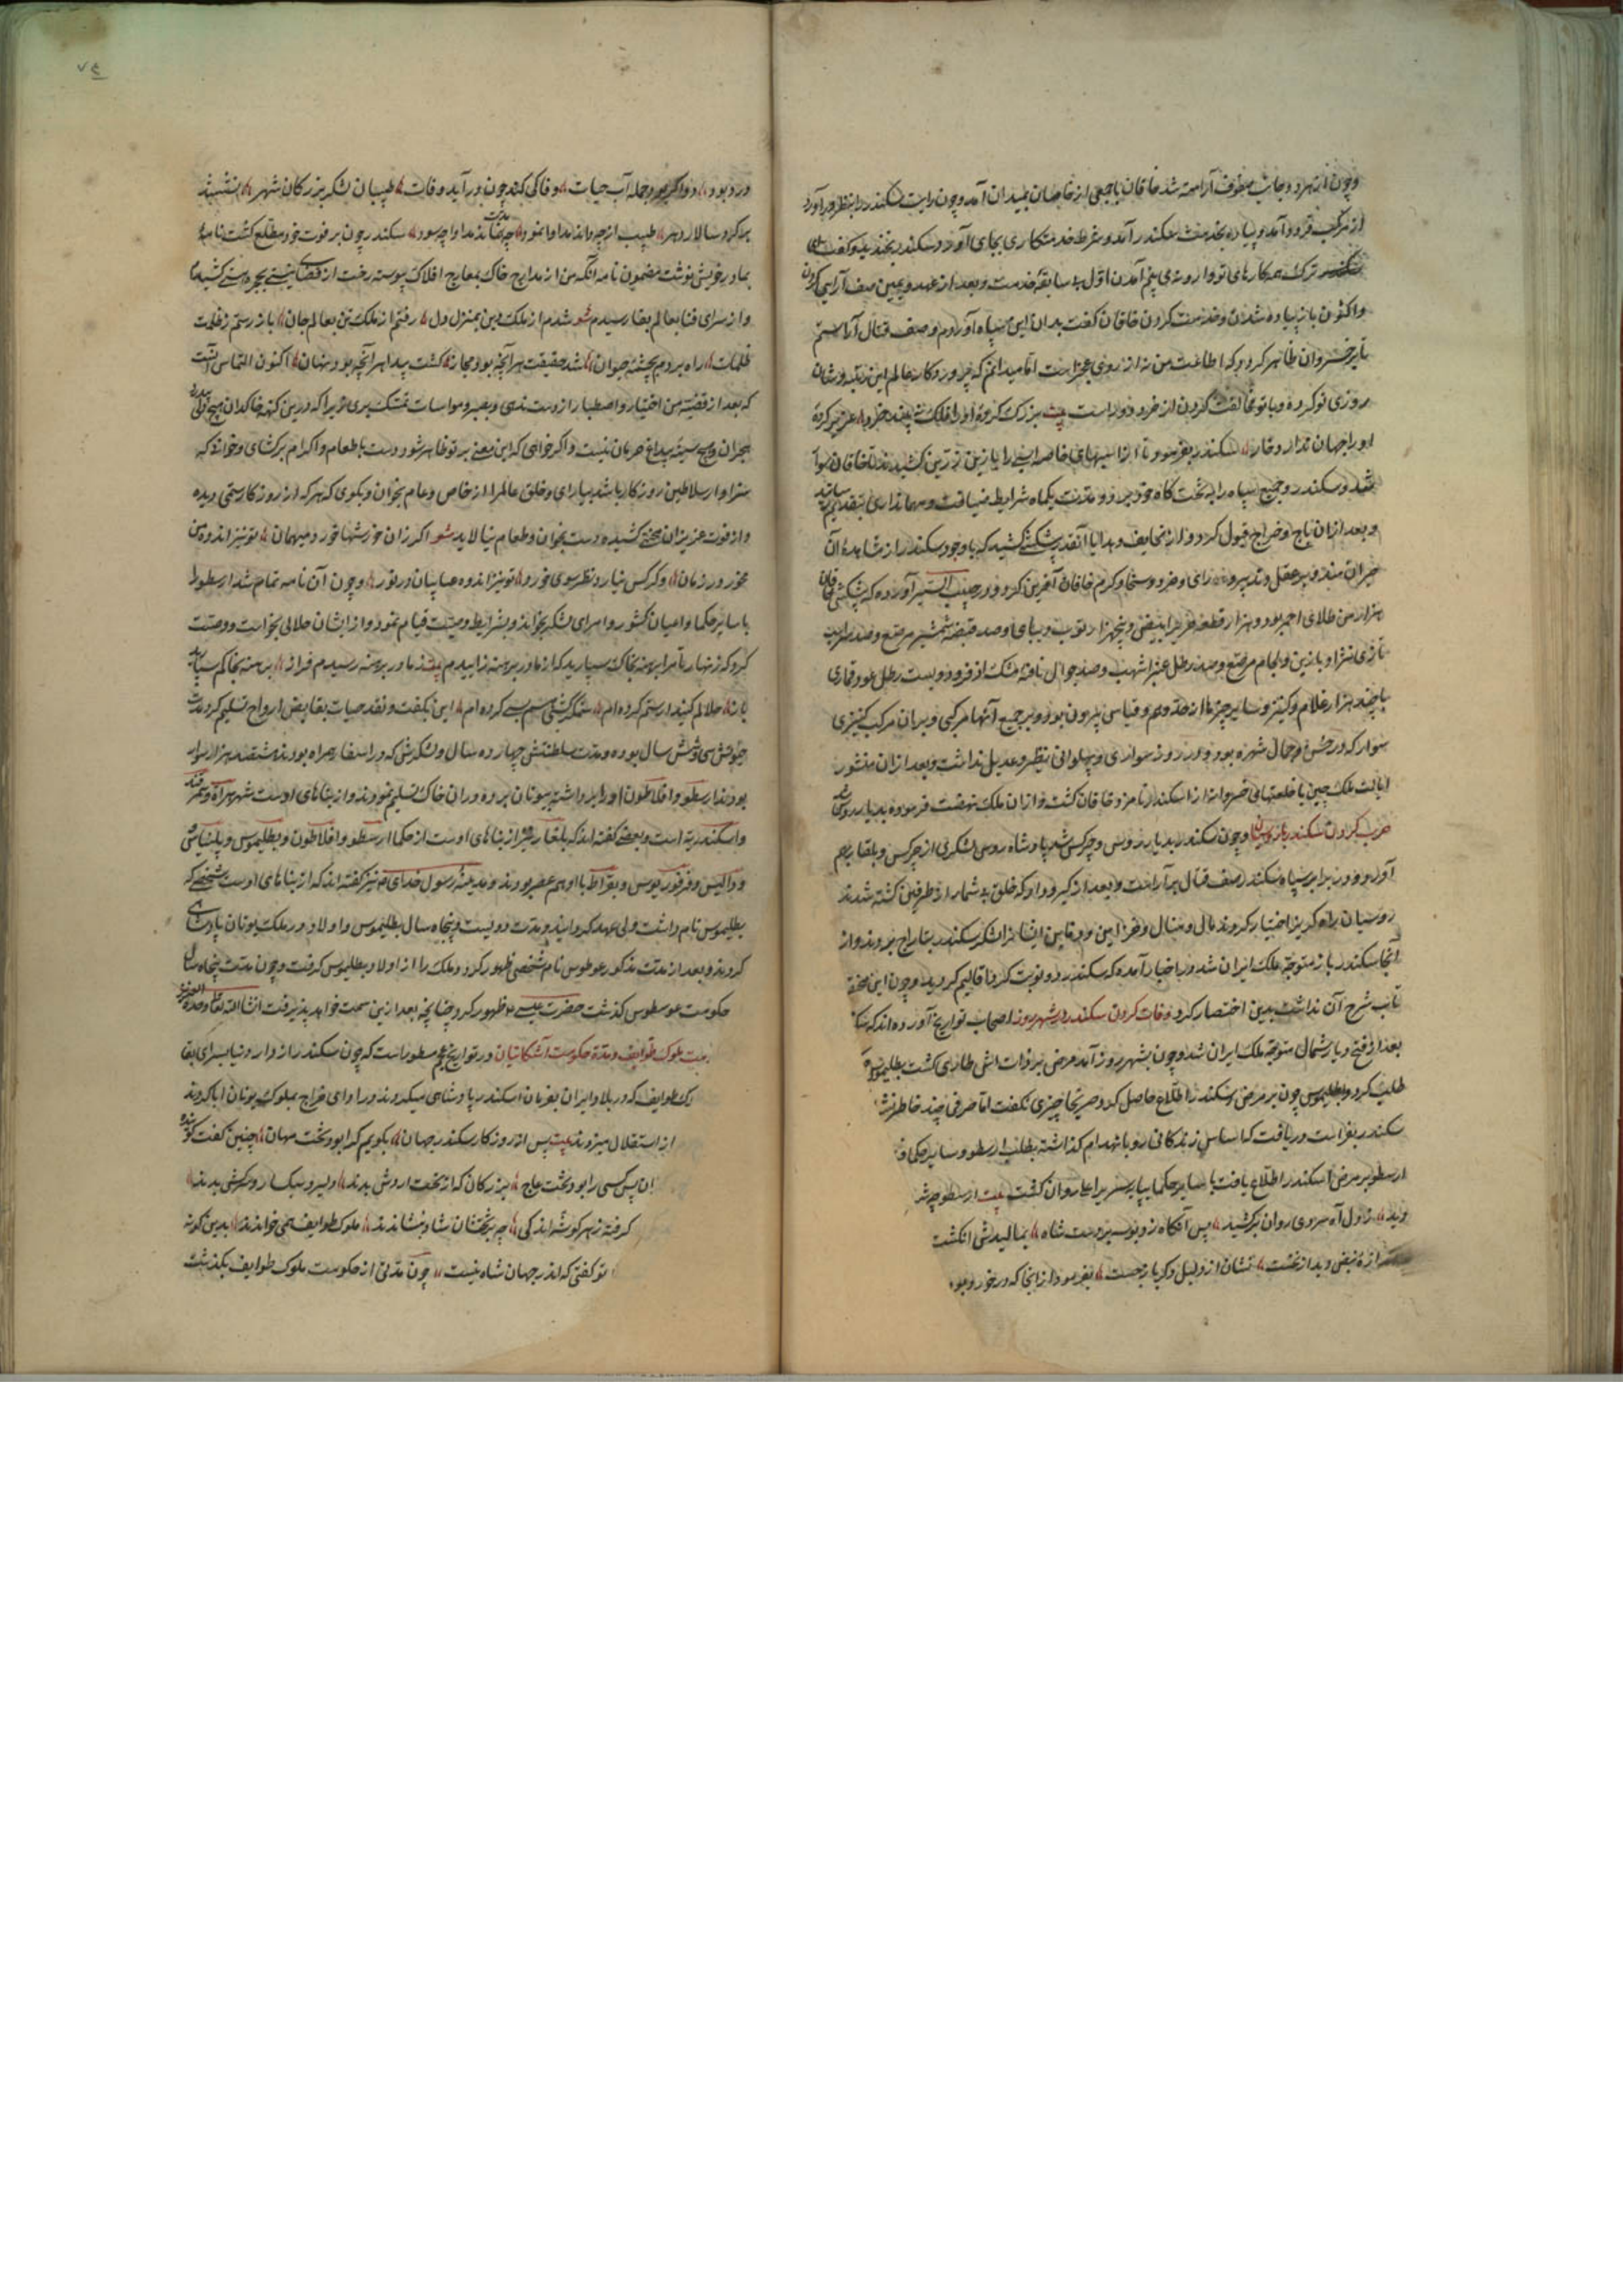 و چون از هر دو جانب صفوف آراسته شد خاقان با جمعی از خاصان بمیدان آمد و چون رایت سکندر را بنظر درآورد
از مرکب فرود آمد و پیاده بخدمت سکندر آمد و شرط خدمتکاری بجای آورد و سکندر بخندید و گفت
ترک همه کارهای تو وارونه می بینم آمدن اول به سابقهٔ خدمت و بعد از عهد و یمین صف آرایی کردن
و اکنون باز پیاده شدن و خدمت کردن خاقان گفت بدان این سپاه آوردم و صف قتال آراستم
تا بر خسروان ظاهر گردد که اطاعت من نه از روی عجز است اما میدانم که چو روزکار عالم این رتبه و شان
روزی تو کرده و با تو مخالفت کردن از خرد دور است بیت بزرک کرده او را فلک نه بیند خرد عزیز کردهٔ
او را جهان ندارد خوار سکندر بفرمود تا از اسپهای خاصه را با زین زرین کشیدند تا خاقان سوار
شد و سکندر و جمیع سپاه را به تختکاه خود برد و مدت یکماه شرایط ضیافت و مهمانداری بتقدیم رسانید
و بعد از آن باج و خراج قبول کرد و از تحایف و هدایا آنقدر پیشکش کشید که با وجود سکندر از مشاهدهٔ آن
حیران مند و بر عقل و تدبیر و رای و خرد و سخا و کرم خاقان آفرین کرد و در حبیب السیر آورده که پیشکش خاقان
هزار من طلای احمر بود و هزار قطعه حریر ابیض و پنجهزار ثوب دیبای و صد قبضه شمشیر مرصع و صد سر اسب
تازی نژاد با زین و لجام مرصع و صد رطل عنبر اشهب و صد جوال نافه مشک اذفر و دویست رطل عود قماری
با چند هزار غلام و کنیز و سایر چیزها از حد وهم و قیاس بیرون بود و بر جمیع آنها مرکبی و بر آن مرکب کنیزی
سوار که در حسن و جمال شهره بود و در روز سواری و پهلوانی نظیر و عدیل نداشت و بعد از آن منشور
ایالت ملک چین با خلعتهای خسروانه از اسکندر نامزد خاقان گشت و از آن ملک نهضت فرموده بدیار روس شد
حرب کردن سکندر با روسیان و چون سکندر بدیار روس و چرکس شد پادشاه روس لشکری از چرکس و بلغار بهم
آورد و در برابر سپاه سکندر صف قتال بیاراست و بعد از گیر و دار که خلق بی شمار از طرفین کشته شدند
روسیان راه گریز اختیار کردند مال و منال و خزاین و دفاین ایشان را لشکر سکندر بتاراج بردند و از
آنجا سکندر باز متوجه ملک ایران شد و در اخبار آمده که سکندر دو نوبت گرد اقالیم گردید و چون این مختصر
تاب شرح آن نداشت بدین اختصار کرد وفات کردن سکندر در شهر روز اصحاب تواریخ آورده اند که سکندر
بعد از فتح دیار شمال متوجه ملک ایران شد و چون بشهر روز آمد مرضی بر ذات اش طاری گشت بطلیموس را
طلب کرد و بطلیموس چون بر مرض سکندر اطلاع حاصل کرد صریحا چیزی نگفت اما حرفی چند خاطر نشین
سکندر بفراست دریافت که اساس زندگانی رو بانهدام گذاشته بطلب ارسطو و سایر حکما
ارسطو بر مرض اسکندر اطلاع یافت با سایر حکما بپای سریر اعلی روان گشت بیت ارسطو چو
دید ز دل آه سردی روان برکشید پس آنگاه زد بوسه بر دست شاه بمالیدش انگشت
اندازهٔ نبض دید از نخست نشان از دلیل دگر باز جست بفرمود از آنجا که در خورد بود
درد بود دوا گر بود جمله آب حیات وفا کی کند چون درآید وفات طبیبان لشکر بزرگان شهر نشستند
بر گرد سالار دهر طبیب ار چه داند مداوا نمود چو مدت نماند مداوا چه سود سکندر چون بر فوت خود مطلع گشت نامهٔ
بمادر خویش نوشت مضمون نامه آنکه من از مدارج خاک بمعارج افلاک پیوسته رخت از کشیدم
و از سرای فنا بعالم بقا رسیدم شو شدم از ملک دین بمنزل دل رفتم از ملک تن بعالم جان باز رستم ز ظلمت
ظلمات راه بردم بچشمهٔ حیوان شد حقیقت هر آنچه بود مجاز گشت پیدا هر آنچه بود نهان اکنون التماس آنست
که بعد از قضیه من اختیار و اصطبار از دست ندهی و بصبر و مواسات تمسک بری زیرا که درین کهنه خاکدان هیچ دلی بیدرد
هجران و هیچ سینه بی داغ حرمان نیست و اگر خواهی که این معنی بر تو ظاهر شود دست باطعام و اکرام برگشای و خوانی که
سزاوار سلاطین روزکار باشد بیارای و خلق عالم را از خاص و عام بخوان و بگوی که هر که از روزکار ستمی دیده
و از فوت عزیزان محنتی کشیده دست بخوان و طعام نیالاید شو اگر زان خورشها خورد میهمان تو نیز انده من
مخور در زمان وگر کس نیارد نظر سوی خورد تو نیز انده من باین در نورد و چون آن نامه تمام شد ارسطو را
با سایر حکما و اعیان کشور و امرای لشکر بخواند و بشرایط وصیت قیام نمود و از ایشان حلالی بخواست و وصیت
کرد که زنهار تا مرا برهنه بخاک بسپارید که از مادر برهنه زاییدم بیت ز مادر برهنه رسیدم فراز برهنه بخاکم سپارید
باز حلالم کنید ار ستم کرده ام ستمگر کشی هم بسی کرده ام این بگفت و نقد حیات بقابض ارواح تسلیم کرد مدت
حیوتش سی و شش سال بوده و مدت سلطنتش چهارده سال و لشکرش که در اسفار همراه بودند هشتصد هزار سوار
بودند ارسطو و افلاطون او را برداشته بیونان برده در آن خاک تسلیم نمودند و از بناهای اوست شهر هراة و سمرقند
و اسکندریه است و بعضی گفته اند که بلغار نیز از بناهای اوست از حکما ارسطو و افلاطون و بطلیموس و بلیناس
و والیس و فرفوریوس و بقراط با او هم عصر بودند و مدینهٔ رسول خدای نیز گفته اند که از بناهای اوست شخصی که
بطلیموس نام داشت ولی عهد گردانید و مدت دویست و پنجاه سال بطلیموس و اولاد در ملک یونان پادشاهی
کردند و بعد از مدت مذکور عوطوس نام شخصی ظهور کرد و ملک را از اولاد بطلیموس گرفت و چون مدت پنجاه سال
حکومت عوسطوس گذشت حضرت عیسی ظهور کرد چنانچه بعد ازین سمت خواهد پذیرفت انشاالله تعالی وحده العزیز
ملوک طوایف و مدة حکومت اشکانیان در تواریخ عجم مسطور است که چون سکندر از دار دنیا بسرای بقا
ملوک طوایف که در بلاد ایران بفرمان اسکندر پادشاهی میکردند در ادای خراج بملوک یونان ابا کردند
از استقلال میزدند بیت پس از روزکار سکندر جهان بگویم کرا بود تخت مهان چنین گفت گوینده
ان پس کسی را نبود تخت عاج بزرگان که از تخم ارش بدند دلیر و سبکسار و سرکش بدند
گرفته ز هر گوشه اندکی چو بر تختشان شاد بنشاندند ملوک طوایف همی خواندند بدین گونه
تو گفتی که اندر جهان شاه نیست چون مدتی از حکومت ملوک طوایف بگذشت